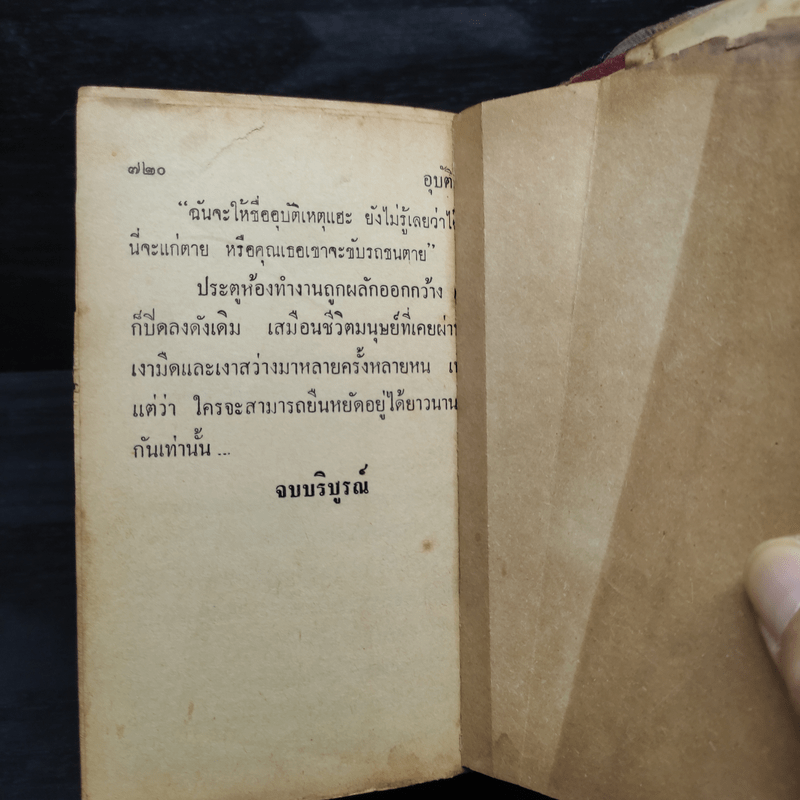 ๗๒๐
อุบัติ
“ฉันจะให้ชื่ออุบัติเหตุแฮะ ยังไม่รู้เลยว่า
นี่จะแก่ตาย หรือคุณเธอเขาจะขับรถชนตาย”
ประตูห้องทำงานถูกผลักออกกว้าง
ก็ปิดลงดังเดิม เสมือนชีวิตมนุษย์ที่เคย
เงามืดและเงาสว่างมาหลายครั้งหลายหน
แต่ว่า ใครจะสามารถยืนหยัดอยู่ได้ยาวนาน
กันเท่านั้น ...
จบบริบูรณ์